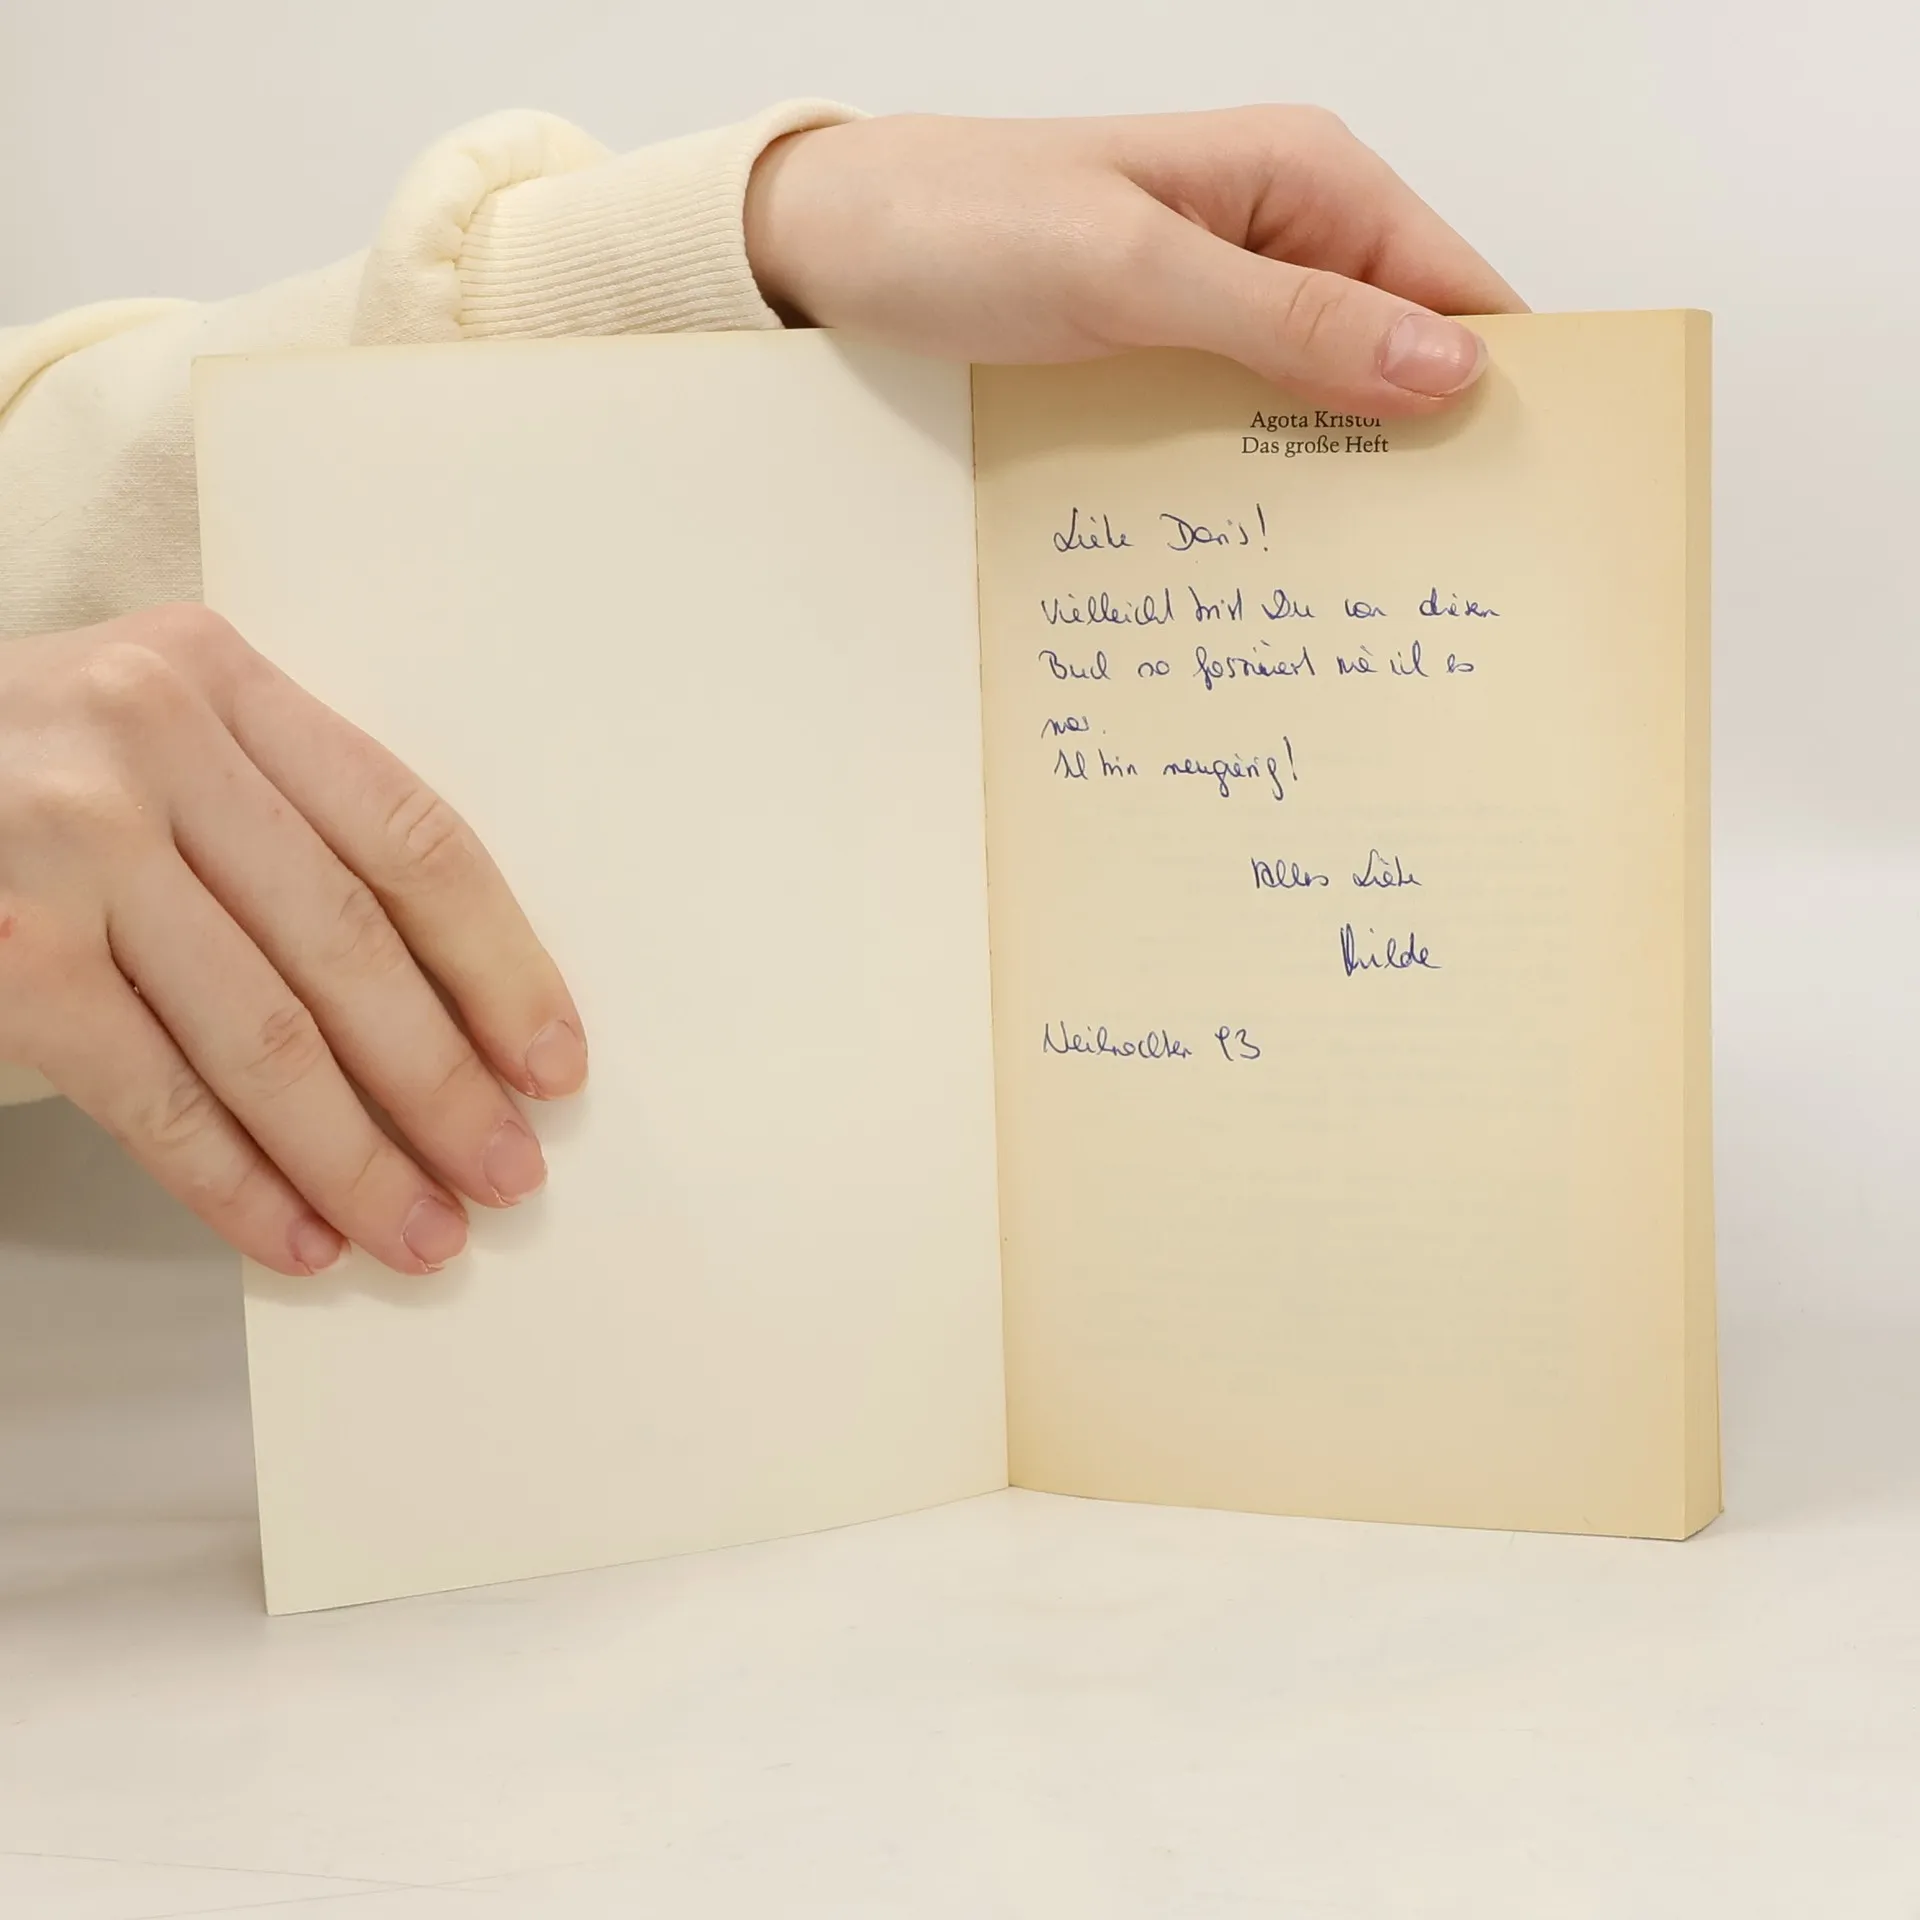 Agota Kristof
Das große Heft
Liebe Doris!
Vielleicht bist Du von diesem
Buch so fasziniert wie ich es
war.
Ich bin neugierig!
Alles Liebe
Weihnachten 93